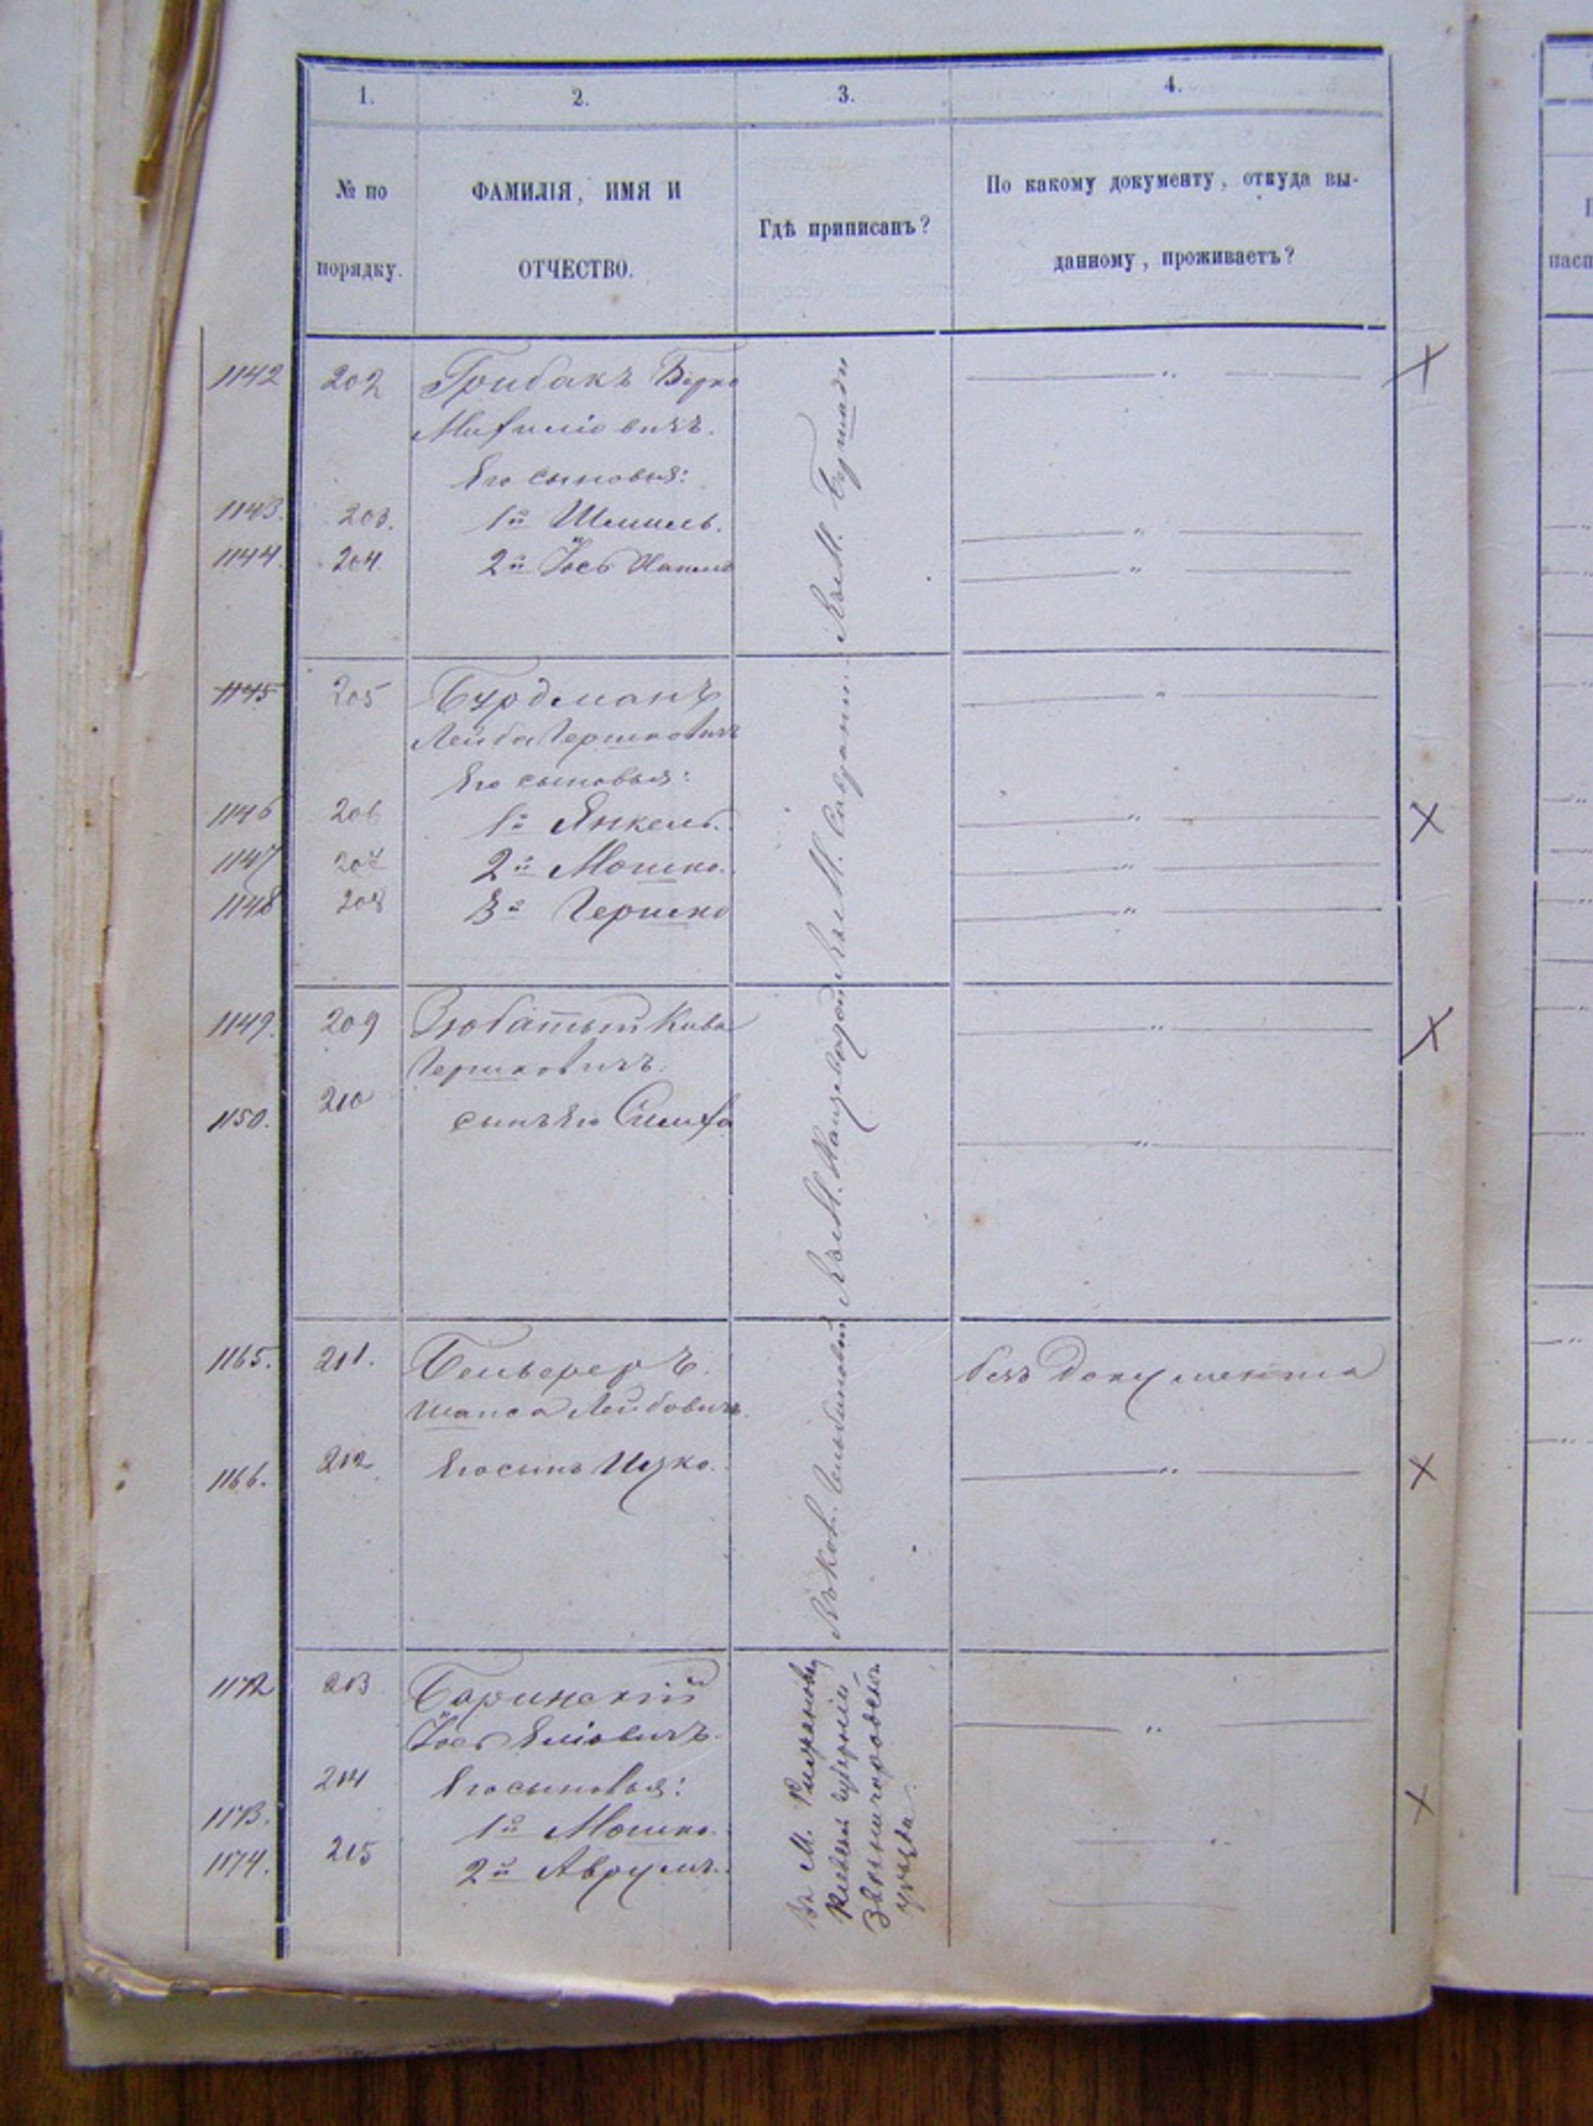 1.
2.
3.
4.
№ по порядку.
ФАМИЛІЯ, ИМЯ И
ОТЧЕСТВО.
Гдѣ приписанъ?
По какому документу, откуда вы-
данному, проживаетъ?
1142 202 Грибакъ Берко — „ —
Его сыновья:
1143. 203. 1й Шмиль. — „ —
1144. 204. 2й Іось — „ —
Къ М. Бершади
1145 205 Бурдманъ — „ —
Лейба Гершковичъ
Его сыновья:
1146 206 1й Янкель. — „ —
1147 207 2й Мошко. — „ —
1148 208 3й Гершко — „ —
Къ М. Саврани.
1149. 209 Зюбатый Кива — „ —
Гершковичъ.
1150. 210 сынъ его Симха — „ —
Къ М.
1165. 211. безъ документа
Шапса Лейбовичъ.
1166. 212 Его сынъ Ицко. — „ —
1172 213 Баринскій — „ —
Іось Еліовичъ.
214 Его сыновья:
1173. 1й Мошко.
1174. 215 2й Аврумъ.
Въ М.
Кіевской губерніи
Звенигородск.
уѣзда.